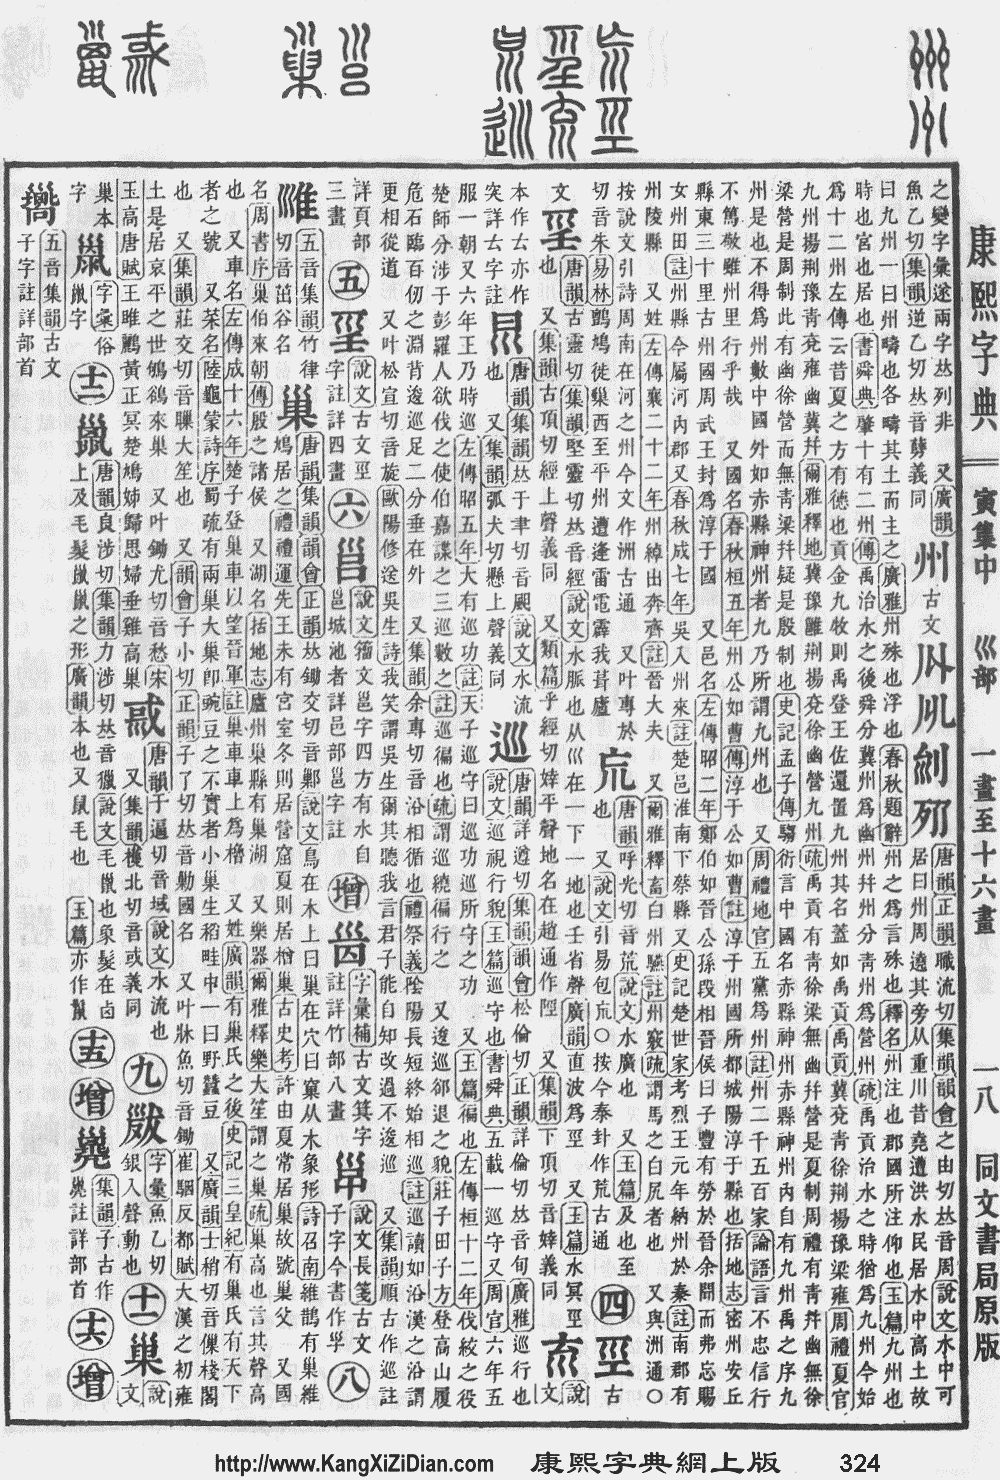 康熙字典
寅集中
巛部
一畫至十六畫
一八
同文書局原版
之變字彙遂兩字𠀤列非 又廣韻
魚乙切集韻逆乙切𠀤音孽義同
州
古文
唐韻正韻職流切集韻韻會之由切𠀤音周說文水中可
居曰州周遶其旁从重川昔堯遭洪水民居水中高土故
曰九州一曰州疇也各疇其土而主之廣雅州殊也浮也春秋題辭州之爲言殊也釋名州注也郡國所注仰也玉篇九州也
時也宮也居也書舜典肇十有二州傳禹治水之後舜分冀州爲幽州幷州分靑州爲營州疏禹貢治水之時猶爲九州今始
爲十二州左傳云昔夏之方有德也貢金九牧則禹登王佐還置九州其名蓋如禹貢禹貢冀兗靑徐荆揚豫梁雍周禮夏官
九州揚荆豫靑兗雍幽冀幷爾雅釋地冀豫雝荆揚兗徐幽營九州疏禹貢有靑徐梁無幽幷營是夏制周禮有靑幷幽無徐
梁營是周制此有幽徐營而無靑梁幷疑是殷制也史記孟子傳騶衍言中國名赤縣神州赤縣神州內自有九州禹之序九
州是也不得爲州數中國外如赤縣神州者九乃所謂九州也 又周禮地官五黨爲州註州二千五百家論語言不忠信行
不篤敬雖州里行乎哉 又國名春秋桓五年州公如曹傳淳于公如曹註淳于州國所都城陽淳于縣也括地志密州安丘
縣東三十里古州國周武王封爲淳于國 又邑名左傳昭二年鄭伯如晉公孫段相晉侯曰子豐有勞於晉余聞而弗忘賜
女州田註州縣今屬河內郡又春秋成七年吳入州來註楚邑淮南下蔡縣又史記楚世家考烈王元年納州於秦註南郡有
州陵縣 又姓左傳襄二十二年州綽出奔齊註晉大夫 又爾雅釋畜白州驠註州竅疏謂馬之白尻者也 又與洲通〇
按說文引詩周南在河之州今文作洲古通 又叶專於
切音朱易林鸇鳩徙巢西至平州遭逢雷電霹我葺廬
巟
唐韻呼光切音荒說文水廣也 又玉篇及也至
也 又說文引易包巟〇按今泰卦作荒古通
四
巠
古
文
坙
唐韻古靈切集韻堅靈切𠀤音經說文水脈也从巛在一下一地也壬省聲廣韻直波爲坙 又玉篇水冥坙
也 又集韻古頂切經上聲義同 又類篇乎經切婞平聲地名在趙通作陘 又集韻下頂切音婞義同
㐬
說
文
本作𠫓亦作
突詳𠫓字註
唐韻集韻𠀤于聿切音䬂說文水流
也 又集韻弧犬切懸上聲義同
巡
唐韻詳遵切集韻韻會松倫切正韻詳倫切𠀤音旬廣雅巡行也
說文巡視行貌玉篇巡守也書舜典五載一巡守又周官六年五
服一朝又六年王乃時巡左傳昭五年大有巡功註天子巡守曰巡功巡所守之功 又玉篇徧也左傳桓十二年伐絞之役
楚師分涉于彭羅人欲伐之使伯嘉諜之三巡數之註巡徧也疏謂巡繞徧行之 又逡巡郤退之貌莊子田子方登高山履
危石臨百仞之淵背逡巡足二分垂在外 又集韻余專切音沿相循也禮祭義陰陽長短終始相巡註巡讀如沿漢之沿謂
更相從道 又叶松宣切音旋歐陽修送吳生詩我笑謂吳生爾其聽我言君子能自知改過不逡巡 又集韻順古作巡註
詳頁部
三畫
五
巠
說文古文巠
字註詳四畫
六
邕
說文籒文邕字四方有水自
邕城池者詳邑部邕字註
增
字彙補古文箕字
註詳竹部八畫
說文長箋古文
子字今書作孚
八
五音集韻竹律
切音茁谷名
巢
唐韻集韻韻會正韻𠀤鋤交切音鄛說文鳥在木上曰巢在穴曰窠从木象形詩召南維鵲有巢維
鳩居之禮禮運先王未有宮室冬則居營窟夏則居橧巢古史考許由夏常居巢故號巢父 又國
名周書序巢伯來朝傳殷之諸侯 又湖名括地志廬州巢縣有巢湖 又樂器爾雅釋樂大笙謂之巢疏巢高也言其聲高
也 又車名左傳成十六年楚子登巢車以望晉軍註巢車車上爲櫓 又姓廣韻有巢氏之後史記三皇紀有巢氏有天下
者之號 又菜名陸龜蒙詩序蜀疏有兩巢大巢卽豌豆之不實者小巢生稻畦中一曰野蠶豆 又廣韻士稍切音𠐊棧閣
也 又集韻莊交切音䫿大笙也 又韻會子小切正韻子了切𠀤音勦國名 又叶牀魚切音鋤崔駰反都賦大漢之初雍
土是居哀平之世鴝鵒來巢 又叶鋤尤切音愁宋
玉高唐賦王雎鸝黃正冥楚鳩姊歸思婦垂雞高巢
唐韻于逼切音域說文水流也
又集韻檴北切音或義同
九
字彙魚乙切
銀入聲動也
十一
巢
說
文
巢本
字
巤
字彙俗
巤字
十二
巤
唐韻良涉切集韻力涉切𠀤音獵說文毛巤也象髮在囟
上及毛髮巤巤之形廣韻本也又鼠毛也 玉篇亦作鬣
十五
增
集韻子古作
巛註詳部首
十六
增
五音集韻古文
子字註詳部首
http://www.KangXiZiDian.com 康熙字典網上版 324